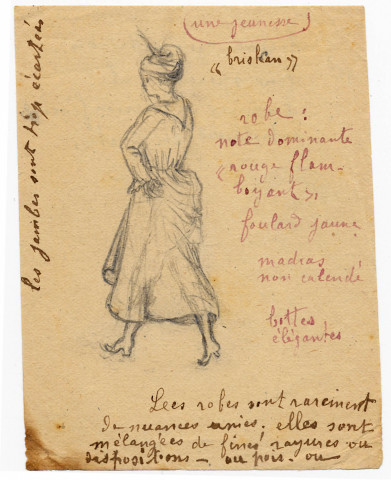 (une jeunesse)
« briskan »
robe :
note dominante
« rouge flam-
boyant »,
foulard jaune
madras
non calendé
bottes
élégantes
Les jambes sont trop écartées
Lees robes sont rarement
de nuances unies. elles sont
mélangées de fines rayures ou
dispositions — ou pois. ou